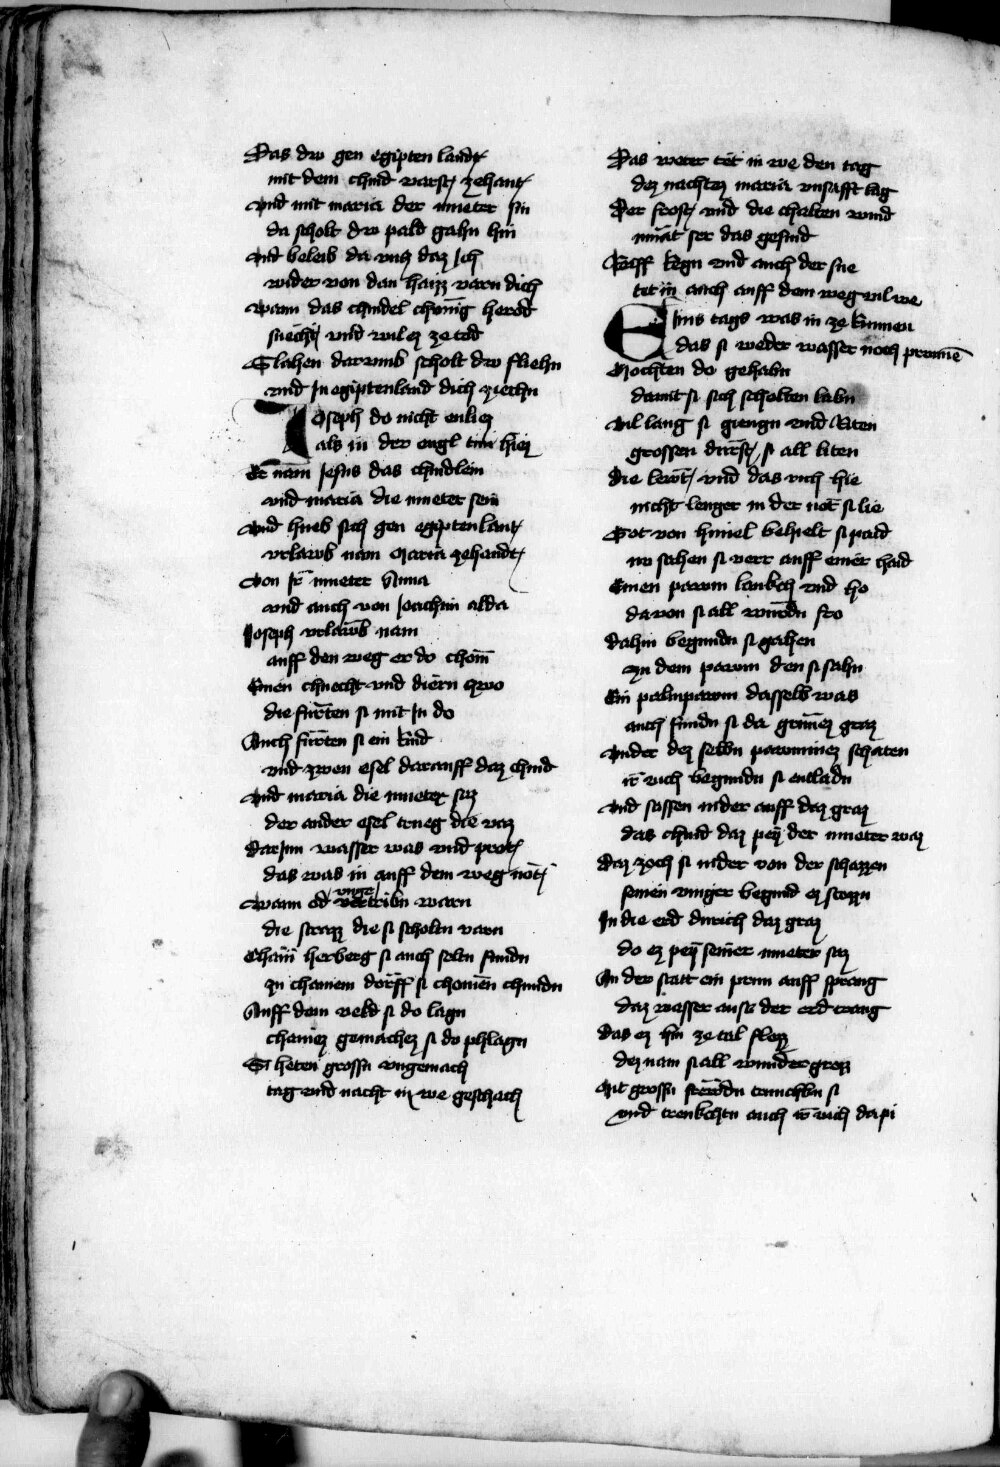 Das dw gen egipten landt
mit dem chind varst zehant
Vnd mit maria der mueter sin
da scholt dw pald gahn hin
Vnd beleib da vncz daz Ich
wider von dan haizz varn dich
Wann das chindel chönig herod
suecht vnd wil ez ze tod
Slahen darumb scholt dw fliehn
vnd In egiptenland dich ziechn
Joseph do nicht enliez
als in der engl tun hiez
Er nam Jesus das chindlein
vnd maria die mueter sein
Vnd hueb sich gen egiptenlant
vrlawb nam Maria zehandt
Von Ir mueter Anna
vnd auch von Joachim alda
Joseph vrlawb nam
auff den weg er do chom
Einen chnecht vnd diern czwo
die fürten si mit In do
Auch fürten si ein Rind
vnd zwen esel darauff daz chind
Vnd maria die mueter saz
der ander esel trueg die vaz
DarInn wasser was vnd prot
das was in auff dem weg nöt
Wann öd vnge vertribn warn
die strazz die si scholtn varn
Chain herberg si auch seltn fundn
zu chainem dörff si chomen chundn
Auff dem veld si do lagn
chainez gemachez si do phlagn
Si heten grossn vngemach
tag vnd nacht in we geschach
Das weter tet in we den tag
dez nachtez maria vnsafft lag
Der frost vnd die chalten wind
müat ser das gesind
Reiff Regn vnd auch der sne
tet in auch auff dem weg vil we
Eins tags was in ze Rinnen
das si weder wasser noch prunnē
Mochten do gehabn
damit si sich scholten labn
Vil lang si giengn vnd Riten
grossen durst si all liten
Die lewt vnd das vich hie
nicht lenger in der not si lie
Got von himel behielt si pald
nu sahen si verr auff einer haid
Einen pawm lankch vnd ho
da von si all wurdn fro
Dahin begundn si gahen
zu dem pawm den si sahn
Ein palmpawm dasselb was
auch fundn si da grünez graz
Vnder dez selbn pawminez schaten
ir vich begundn si entladn
Vnd sassen nider auff daz graz
das chind daz pey der mueter waz
Daz zoch si nider von der schazzen
seinen vinger begund ez stozzn
In die erd durich daz graz
do ez pey seiner mueter saz
An der statt ein prun auff sprang
daz wasser auss der erd trang
das ez hin ze tal flozz
dez nam si all wunder grozz
Mit grossn frewdn trunchbn si
vnd trenkchtn auch ir vich dapi